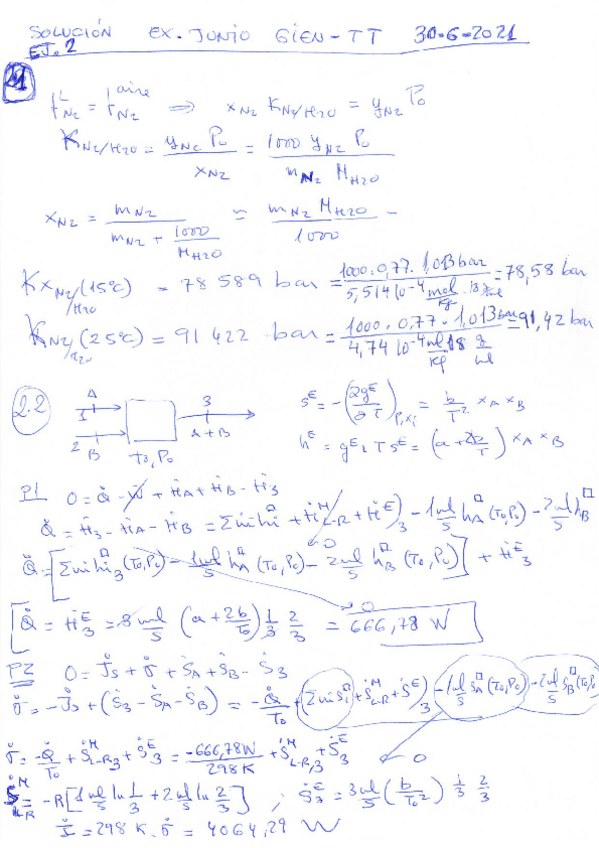 SOLUCIÓN EX. JUNIO GIEN-TT 30-6-2021
EJ. 2
2.1
f^L_N2 = f^aire_N2 ⟹ x_N2 K_N2/H2O = y_N2 P0
K_N2/H2O = y_N2 P0 / x_N2 = 1000 y_N2 P0 / m_N2 M_H2O
x_N2 = m_N2 / (m_N2 + 1000/M_H2O) ≈ m_N2 M_H2O / 1000
K x_N2/H2O (15ºC) = 78 589 bar = 1000·0,77·1,013 bar / 5,514 10^-4 mol/kg · 18 = 78,58 bar
K_N2/H2O (25ºC) = 91 422 bar = 1000·0,77·1,013 bar / 4,74 10^-4 ml/kg 18 g/ml = 91,42 bar
2.2
A
1
2
B
T0, P0
3
A+B
s^E = -(∂g^E/∂T)_P,xi = b/T² x_A x_B
h^E = g^E + T s^E = (a + 2b/T) x_A x_B
P1 0 = Q̇ - Ẇ + Ḣ_A + Ḣ_B - Ḣ_3
Q̇ = Ḣ_3 - Ḣ_A - Ḣ_B = (Σ ṅi hi^□ + Ḣ^M_L-R + Ḣ^E)_3 - 1 ml/s h_A^□ (T0, P0) - 2 ml/s h_B^□
Q̇ = [Σ ṅi hi_3^□ (T0, P0) - 1 ml/s h_A^□ (T0, P0) - 2 ml/s h_B^□ (T0, P0)] + Ḣ^E_3
0
Q̇ = Ḣ^E_3 = 3 ml/s (a + 2b/T0) 1/3 2/3 = 666,78 W
P2 0 = J̇s + σ̇ + Ṡ_A + Ṡ_B - Ṡ_3
σ̇ = -J̇s + (Ṡ_3 - Ṡ_A - Ṡ_B) = -Q̇/T0 + (Σ ṅi si^□ + Ṡ^M_L-R + Ṡ^E)_3 - 1 ml/s s_A^□ (T0, P0) - 2 ml/s s_B^□ (T0, P0)
σ̇ = -Q̇/T0 + Ṡ^M_L-R,3 + Ṡ^E_3 = -666,78 W / 298 K + Ṡ^M_L-R,3 + Ṡ^E_3 0
Ṡ^M_L-R = -R [1 ml/s ln 1/3 + 2 ml/s ln 2/3] ; Ṡ^E_3 = 3 ml/s (b/T0²) 1/3 2/3
İ = 298 K · σ̇ = 4064,29 W